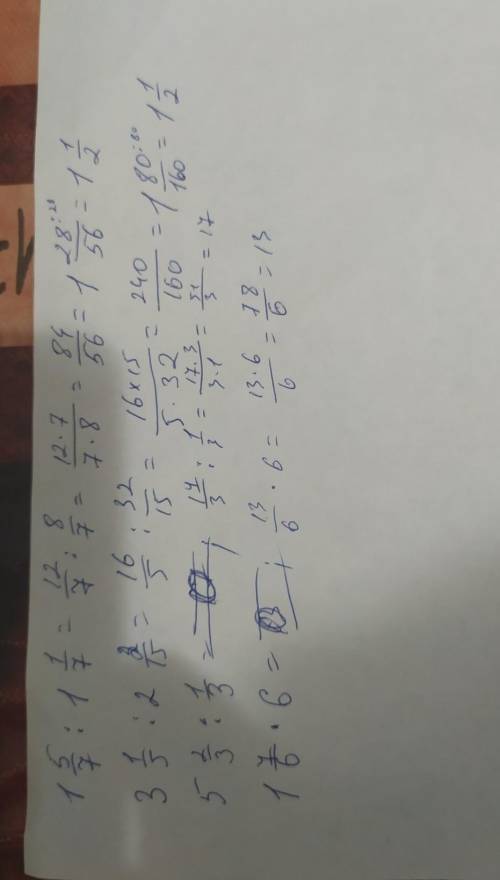 1 5/7 : 1 1/7 = 12/7 : 8/7 = 12·7/7·8 = 84/56 = 1 28/56 :28 = 1 1/2
3 1/5 : 2 2/15 = 16/5 : 32/15 = 16×15/5·32 = 240/160 = 1 80/160 :80 = 1 1/2
5 2/3 : 1/3 = ; 17/3 : 1/3 = 17·3/3·1 = 51/3 = 17
1 7/6 · 6 = ; 13/6 · 6 = 13·6/6 = 78/6 = 13